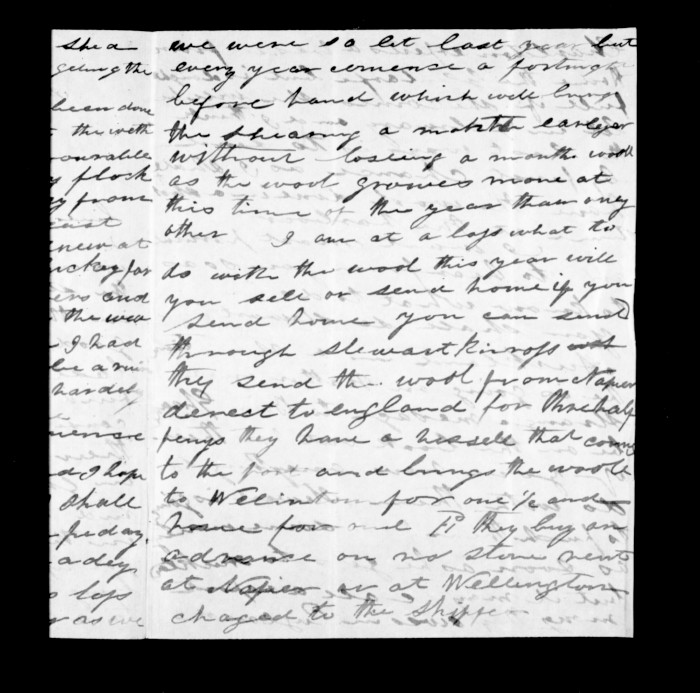 shea
geting the
been done
the with
vourable
flock
from
just
new at
luckey for
ers and
the wea
I had
be a
hardely
mense
d I hope
I shall
a dey
loss
as we
we were so let last year but
every year comense a fortnight
before hand which will bring
the shearing a month earleyer
without loseing a month wooll
as the wool growes more at
this time of the year than oney
other I am at a loss what to
do with the wool this year will
you sell or send home if you
send home you can send
through stewart kinross
they send the wool from Napier
derest to england for threehalf
penys they have a vessell that comes
to the port and brings the wooll
to Welinton for one ½ and
home for P. they buy an
advance on no store rent
at Napier or at Wellington
chaged to the shipper